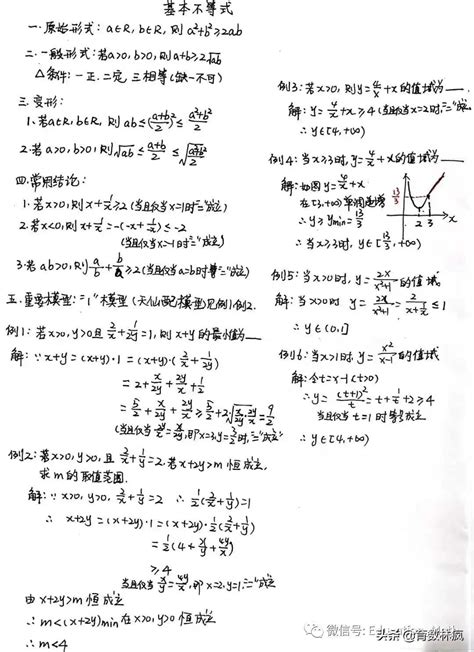 基本不等式
一.原始形式: a∈R, b∈R, 则 a²+b²≥2ab
二.一般形式: 若a>0, b>0, 则 a+b≥2√ab
△条件: 一正.二定.三相等(缺一不可)
三.变形:
1.若a∈R, b∈R, 则 ab≤((a+b)/2)²≤(a²+b²)/2
2.若a>0, b>0, 则√ab≤(a+b)/2≤√((a²+b²)/2)
四.常用结论:
1.若x>0, 则 x+1/x≥2 (当且仅当x=1时"="成立)
2.若x<0, 则 x+1/x=-(-x+1/-x)≤-2
(当且仅当x=-1时"="成立)
3.若ab>0, 则 a/b+b/a≥2 (当且仅当a=b时"="成立)
五.重要模型: "1"模型(天仙配模型见例1例2.
例1: 若x>0, y>0且2/x+1/2y=1, 则x+y的最小值为
解: ∵x+y=(x+y)·1=(x+y)·(2/x+1/2y)
=2+x/2y+2y/x+1/2
=5/2+x/2y+2y/x≥5/2+2·√(x/2y·2y/x)=9/2
(当且仅当x/2y=2y/x, 即x=3, y=3/2时, "="成立
例2: 若x>0, y>0, 且2/x+1/y=2, 若x+2y>m恒成立,
求m的取值范围.
解: ∵x>0, y>0, 2/x+1/y=2 ∴1/2(2/x+1/y)=1
∴x+2y=(x+2y)·1=(x+2y)·1/2(2/x+1/y)
=1/2(4+x/y+4y/x)
≥4
当且仅当x/y=4y/x, 即x=2, y=1, "="成立
由x+2y>m恒成立
∴m<(x+2y)min在x>0, y>0恒成立
∴m<4
例3: 若x>0, 则y=4/x+x的值域为
解: y=4/x+x≥4 (当且仅当x=2时, "="成立
∴y∈[4,+∞)
例4: 当x≥3时, y=4/x+x的值域为
解: 如图y=4/x+x
在[3,+∞)单调递增
∴y≥ymin=13/3
∴当x≥3时, y∈[13/3,+∞)
13/3
2 3 x
例5: 当x>0时, y=2x/(x²+1)的值域.
解: 当x>0时 y=2x/(x²+1)=2/(x+1/x)≤1
∴y∈(0,1]
例6: 当x>1时, y=x²/(x-1)的值域
解: 令t=x-1(t>0)
∴y=(t+1)²/t=t+1/t+2≥4
当且仅当t=1时等号成立
∴y∈[4,+∞)
微信号:
头条 @育数林疯